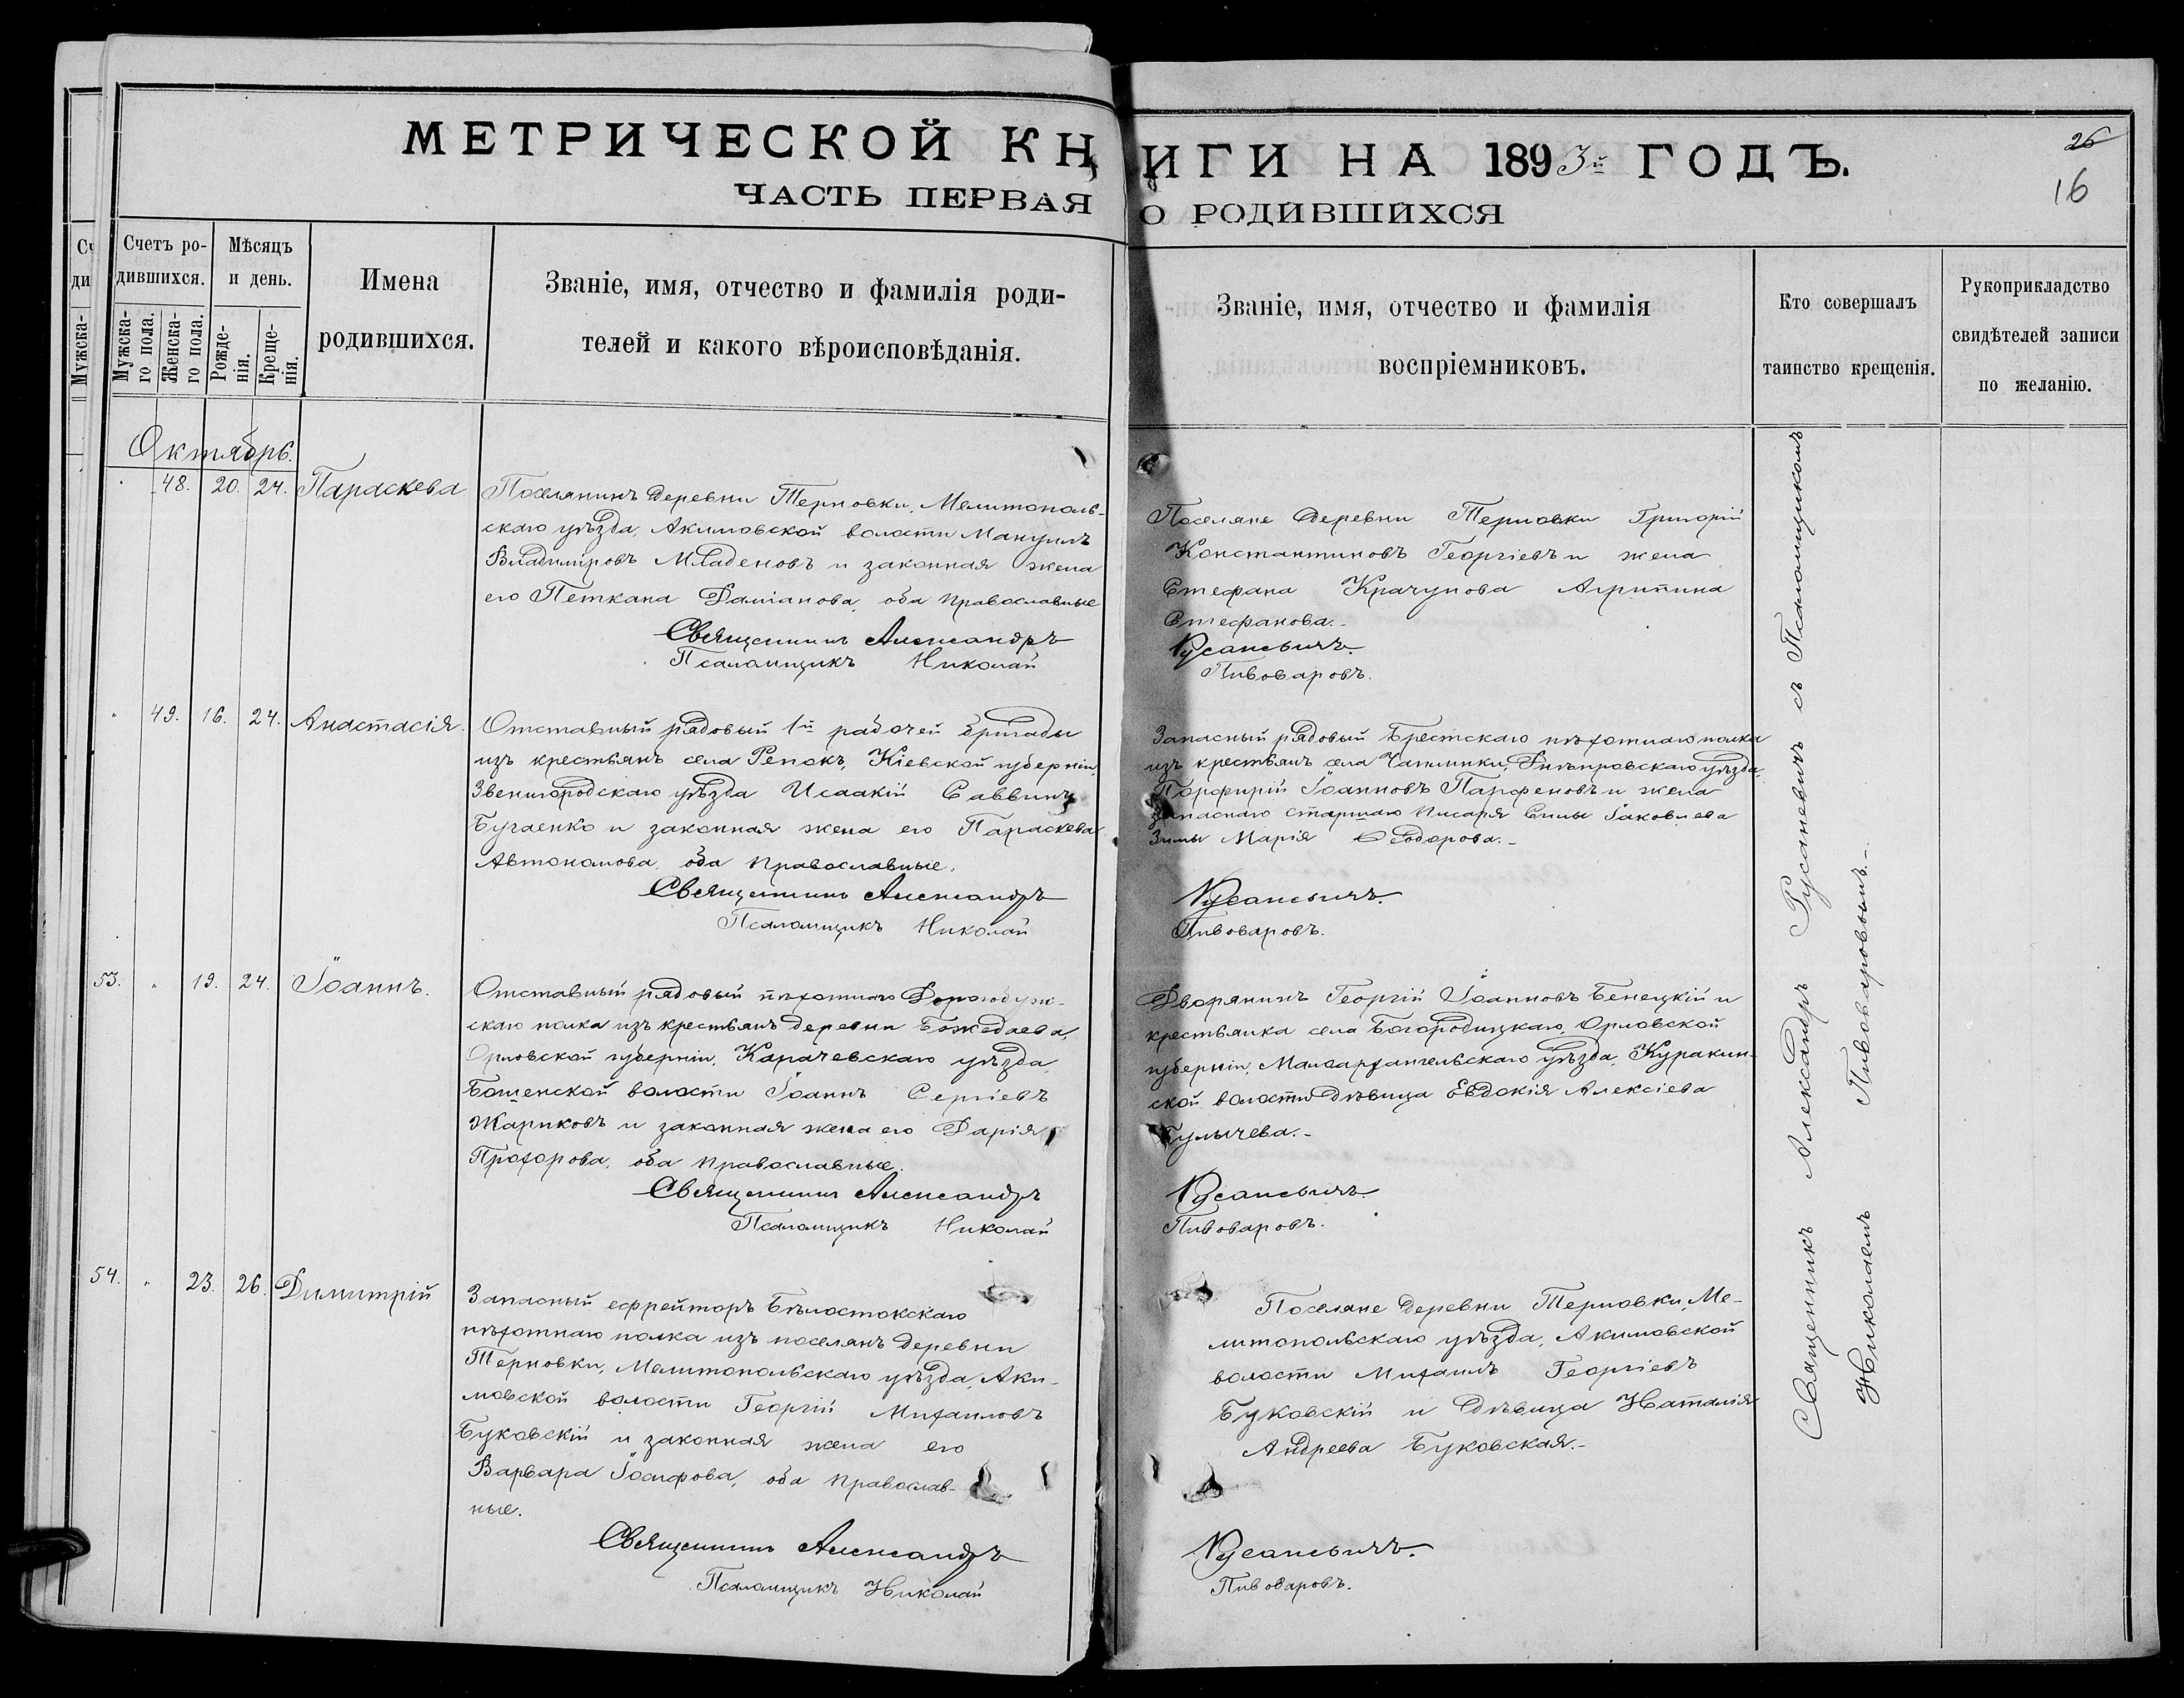 МЕТРИЧЕСКОЙ КНИГИ НА 1893й ГОДЪ.
ЧАСТЬ ПЕРВАЯ О РОДИВШИХСЯ
26
16
Счетъ ро-
дившихся.
Мужска-
го пола.
Женска-
го пола.
Мѣсяцъ
и день.
Рожде-
нія.
Креще-
нія.
Имена
родившихся.
Званіе, имя, отчество и фамилія роди-
телей и какого вѣроисповѣданія.
Званіе, имя, отчество и фамилія
воспріемниковъ.
Кто совершалъ
таинство крещенія.
Рукоприкладство
свидѣтелей записи
по желанію.
Октябрь.
48. 20. 24. Параскева
Поселянинъ деревни Терновки, Мелитополь-
скаго уѣзда, Акимовской волости Мануилъ
Владиміровъ Младеновъ и законная жена
его Петкана Даміанова, оба православные
Священникъ Александръ
Псаломщикъ Николай
Поселяне деревни Терновки Григорій
Константиновъ Георгіевъ и жена
Стефана Крачунова Агрипина
Стефанова.-
Русаневичъ.
Пивоваровъ.
" 49. 16. 24. Анастасія.
Отставный рядовый 1й рабочей бригады
изъ крестьянъ села Репокъ, Кіевской губерніи,
Звенигородскаго уѣзда Исаакій Саввинъ
Бугаенко и законная жена его Параскева
Автономова, оба православные.
Священникъ Александръ
Псаломщикъ Николай
Запасный рядовый Брестскаго пѣхотнаго полка
изъ крестьянъ села Чаплинки, Днѣпровскаго уѣзда,
Порфирій Іоанновъ Парфеновъ и жена
запаснаго старшаго писаря Силы Іаковлева
Зимы Марія Ѳеодорова.-
Русаневичъ.
Пивоваровъ.
53. " 19. 24. Іоаннъ.
Отставный рядовый пѣхотнаго Дорогобуж-
скаго полка изъ крестьянъ деревни Божедаева,
Орловской губерніи, Карачевскаго уѣзда
Бошенской волости Іоаннъ Сергіевъ
Жариковъ и законная жена его Дарія
Прохорова, оба православные.
Священникъ Александръ
Псаломщикъ Николай
Дворянинъ Георгій Іоанновъ Бенецкій и
крестьянка села Богородицкаго, Орловской
губерніи, Малоархангельскаго уѣзда, Куракин-
ской волости дѣвица Евдокія Алексіева
Булычева.-
Русаневичъ.
Пивоваровъ.
54. " 23. 26. Димитрій
Запасный ефрейторъ Бѣлостокскаго
пѣхотнаго полка изъ поселянъ деревни
Терновки, Мелитопольскаго уѣзда, Аки-
мовской волости Георгій Михаиловъ
Буковскій и законная жена его
Варвара Іосифова, оба православ-
ные.
Священникъ Александръ
Псаломщикъ Николай
Поселяне деревни Терновки, Ме-
литопольскаго уѣзда, Акимовской
волости Михаилъ Георгіевъ
Буковскій и дѣвица Наталія
Андреева Буковская.-
Русаневичъ.
Пивоваровъ.
Священникъ Александръ Русаневичъ съ Псаломщикомъ
Николаемъ Пивоваровымъ.-